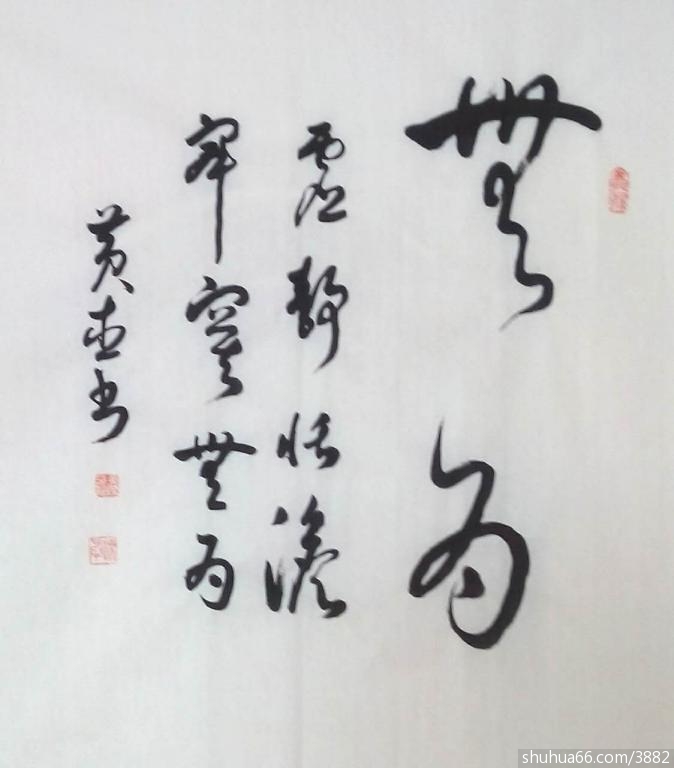 無為
虛靜恬澹
寂寞無為
黄書
shuhua66.com/3882